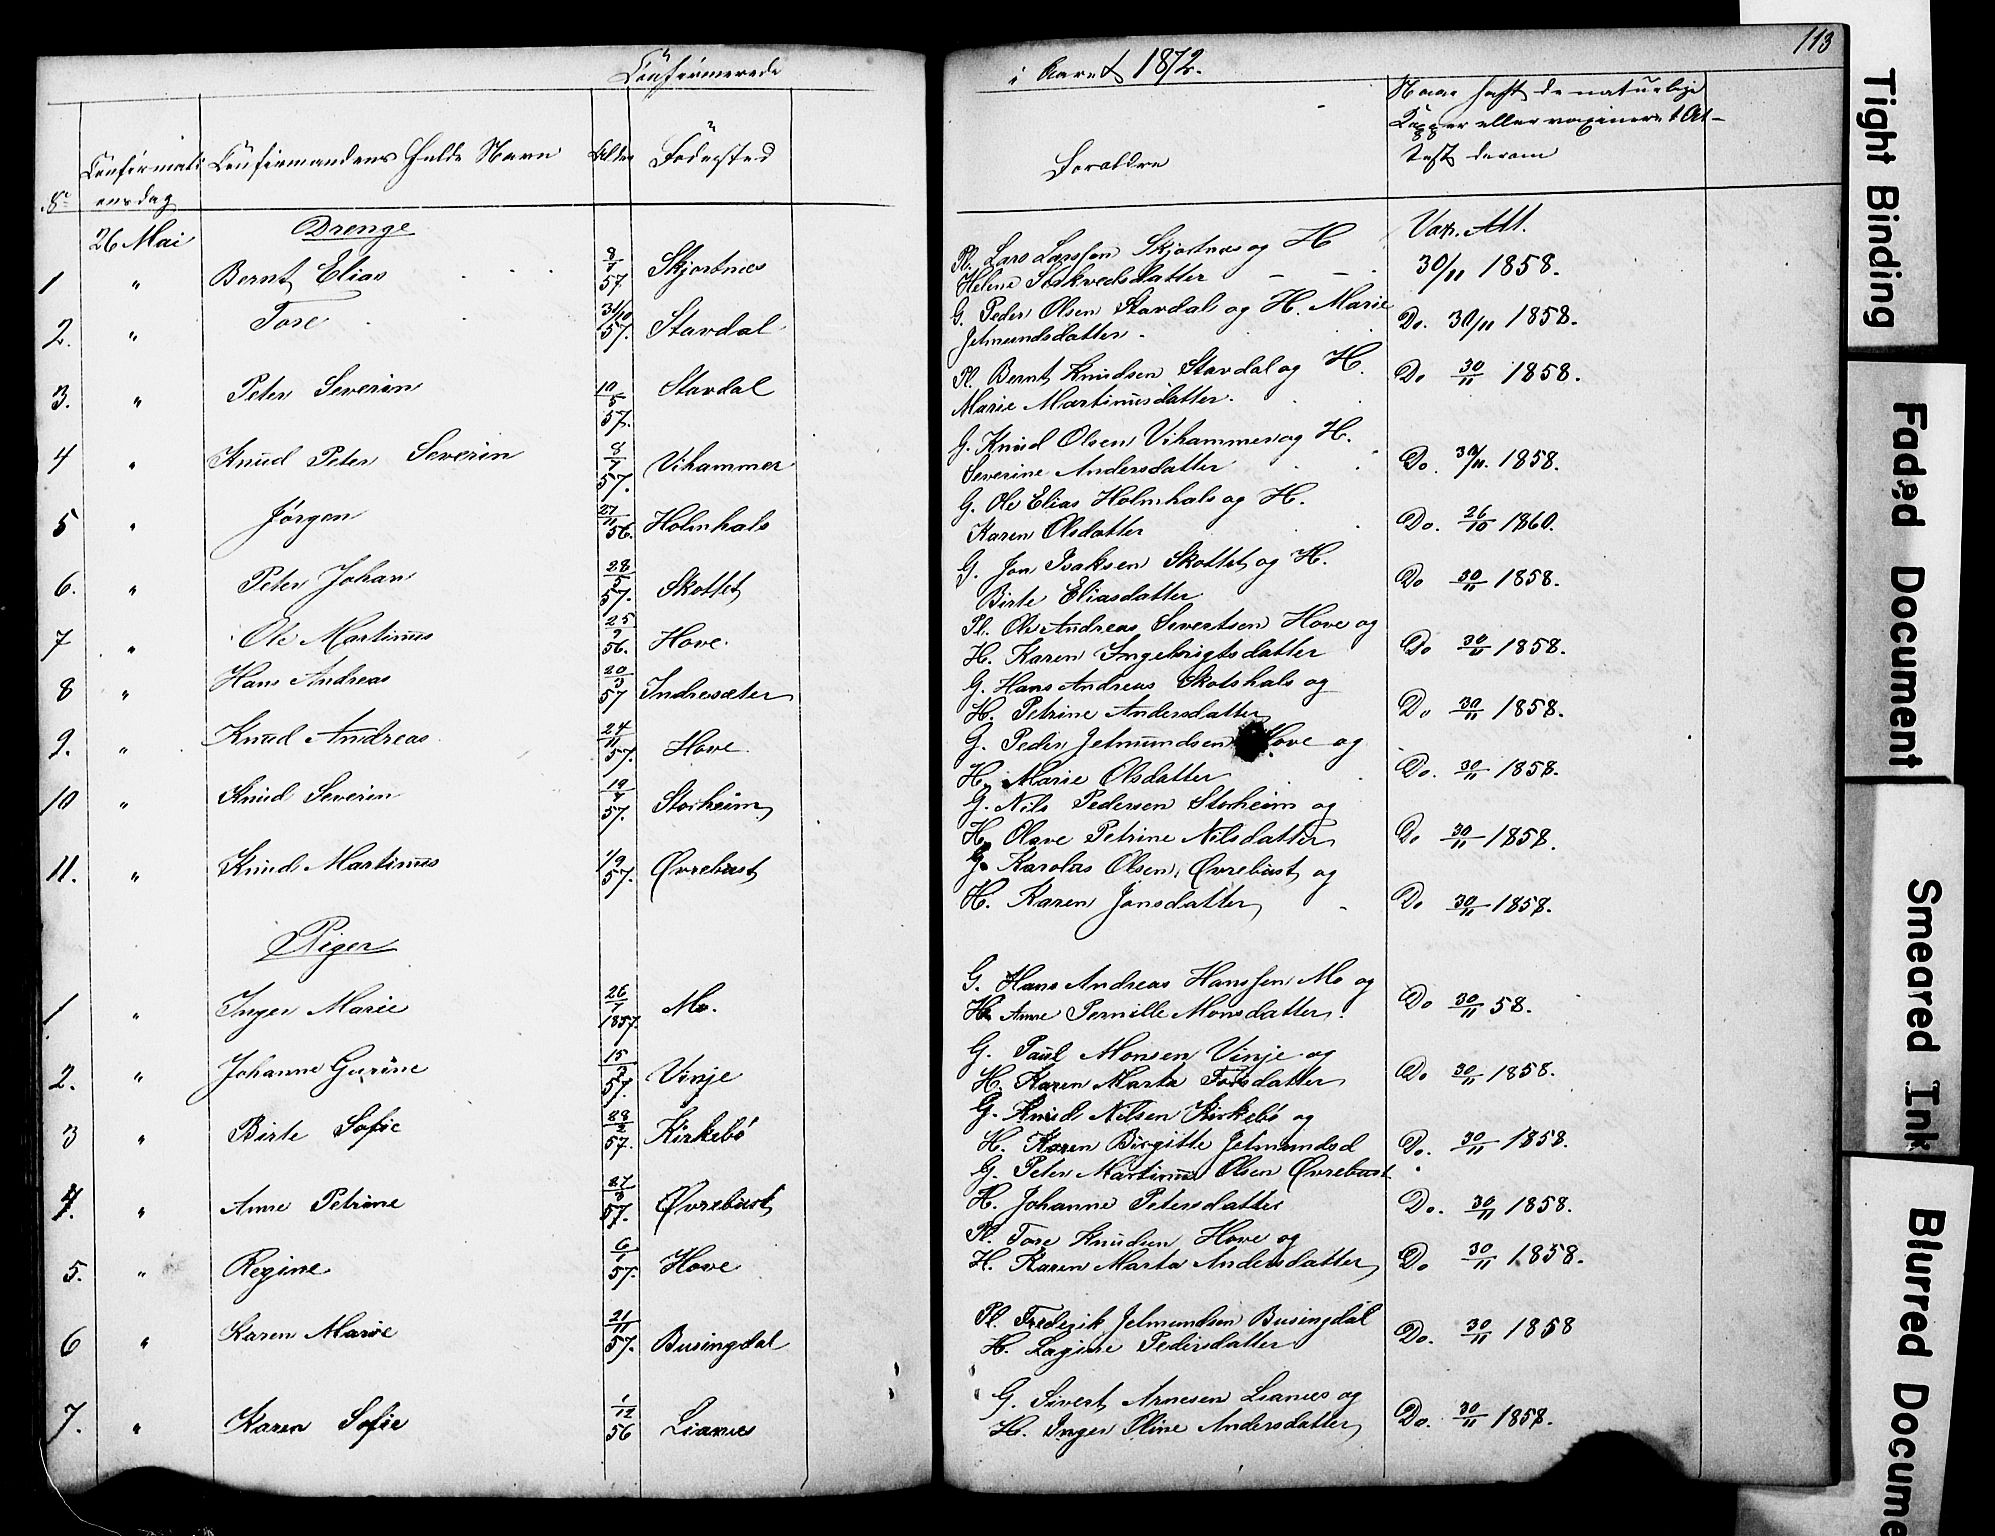 Confirmerede
i Aaret 1872.
113
No
Confirmationsdag
Confirmandens fulde Navn
Alder
Fødested
Forældre
Naar havt de naturlige
Kopper eller vaxineret At-
test derom
26 Mai
Drenge
Vax. Att.
1 " Bernt Elias 8/7 57. Skjortnes Pl. Lars Larssen Skjortnes og H
Helene Sjurdsdatter 30/11 1858.
2. " Tore 31/10 57. Stavdal G. Peder Olsen Stavdal og H. Marie
Jetmundsdatter. Do. 30/11 1858.
3. " Peter Severin 10/5 57. Stavdal Pl. Bernt Knudsen Stavdal og H.
Marie Martinusdatter. Do 30/11 1858.
4 " Knud Peter Severin 8/7 57. Vihammer G. Knud Olsen Vihammer og H.
Severine Andersdatter Do. 30/11. 1858.
5 " Jørgen 27/11 56. Holmhals G. Ole Elias Holmhals og H.
Karen Olsdatter Do. 26/10 1860.
6. " Peter Johan 28/5 57. Skottet G. Jon Isaksen Skottet og H.
Birte Eliasdatter Do 30/11 1858.
7 " Ole Martinus 25/9 56. Hove. Pl. Ole Andreas Severtsen Hove og
H. Karen Ingebrigtsdatter Do 30/11 1858.
8 " Hans Andreas 20/3 57 Indresæter G. Hans Andreas Skotshals og
H. Petrine Andersdatter Do 30/11 1858.
9. " Knud Andreas 24/11 57. Hove. G. Peder Jetmundsen Hove og
H. Marie Olsdatter Do. 30/11 1858.
10 " Knud Severin 19/7 57. Storheim G. Nils Pedersen Storheim og
H. Olave Petrine Nilsdatter Do 30/11 1858.
11. " Knud Martinus 1/9 57. Øvrebust G. Karolus Olsen Øvrebust og
H. Karen Jonsdatter Do 30/11 1858.
Piger
1 " Inger Marie 26/7 1857. Mo. G. Hans Andreas Hanssen Mo og
H. Anne Pernille Monsdatter. Do 30/11 58.
2. " Johanne Gurine 15/7 57. Vinje G. Paul Monsen Vinje og
H. Karen Marta Toresdatter Do 30/11 1858.
3 " Birte Sofie 28/2 57. Kirkebø G. Knud Nilsen Kirkebø og
H. Karen Birgitte Jetmundsd Do. 30/11 1858.
4. " Anne Petrine 27/3 57. Øvrebust G. Peter Martinus Olsen Øvrebust
H. Johanne Petersdatter Do. 30/11 1858.
5. " Regine 6/1 57. Hove Pl. Tore Knudsen Hove og
H. Karen Marta Andersdatter Do 30/11 1858.
6 " Karen Marie 21/11 57. Busingdal Pl. Frederik Jetmundsen Busingdal
H. Lagine Pedersdatter Do. 30/11 1858
7. " Karen Sofie 1/12 56 Lianes G. Sivert Arnesen Lianes og
H. Inger Oline Andersdatter Do. 30/11 1858.
Tight Binding
Faded Document
Smeared Ink
Blurred Docume